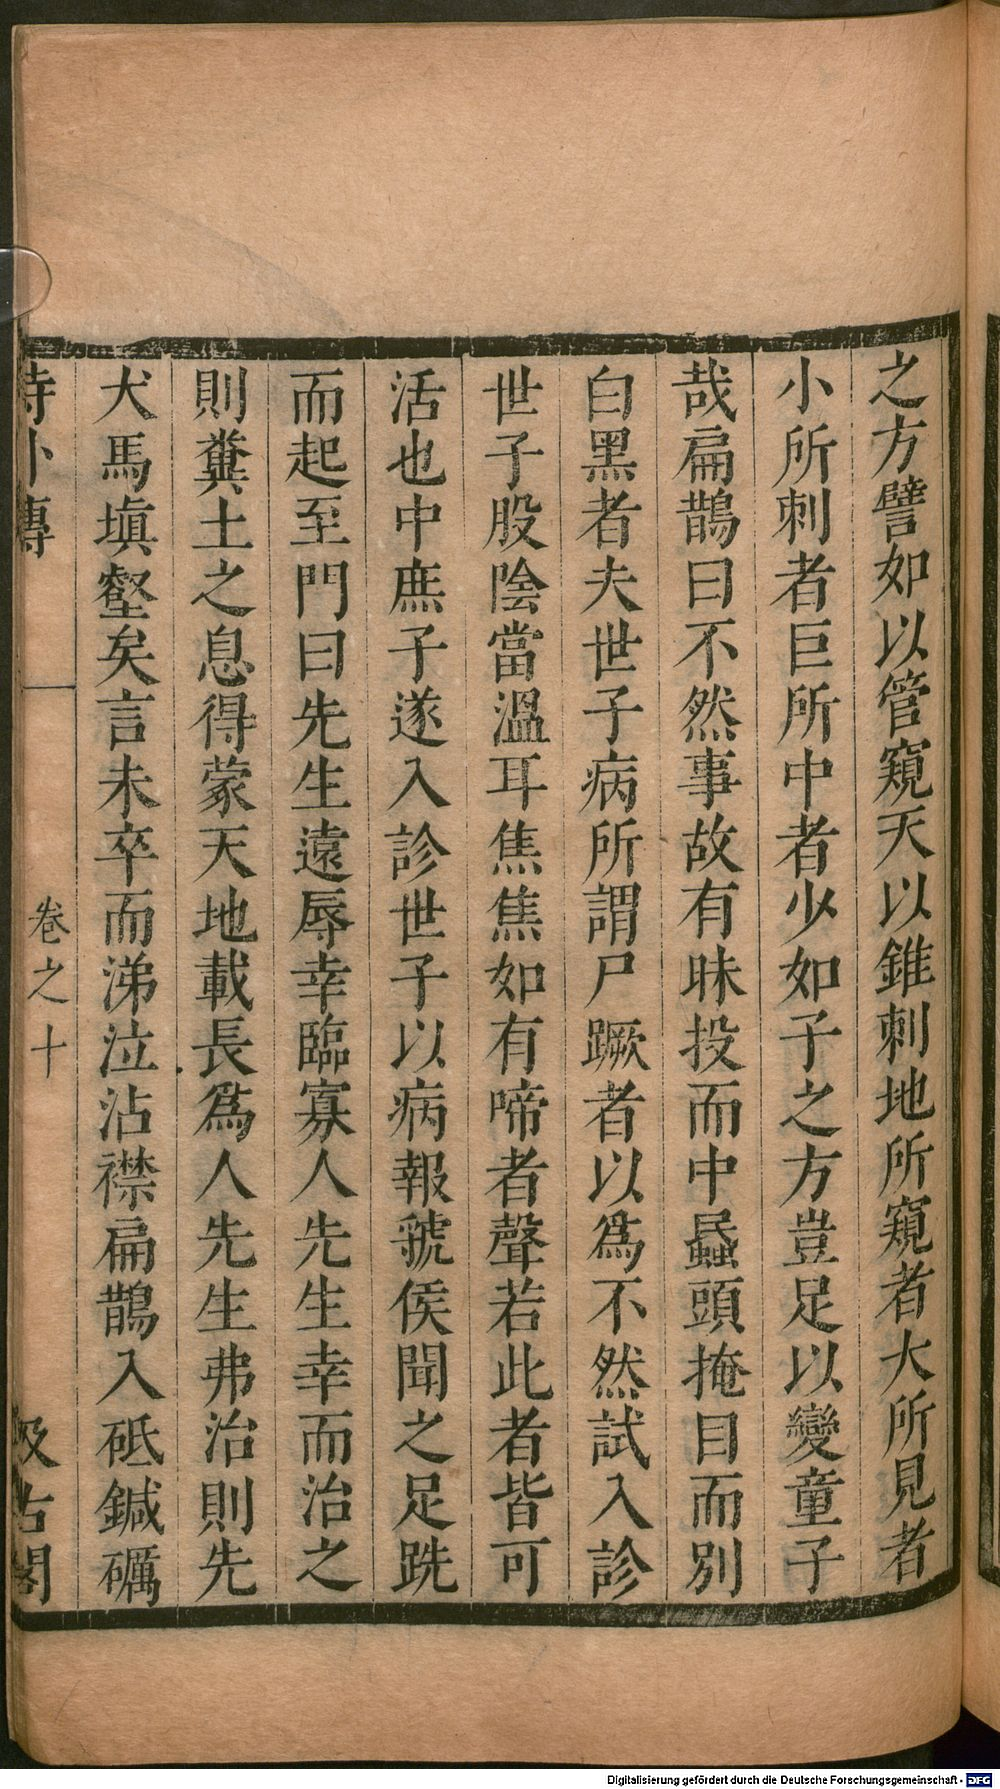 之方譬如以管窺天以錐刺地所窺者大所見者
小所刺者巨所中者少如子之方豈足以變童子
哉扁鵲曰不然事故有昧投而中蟁頭掩目而別
白黑者夫世子病所謂尸蹶者以爲不然試入診
世子股陰當溫耳焦焦如有啼者聲若此者皆可
活也中庶子遂入診世子以病報虢侯聞之足跣
而起至門曰先生遠辱幸臨寡人先生幸而治之
則糞土之息得蒙天地載長爲人先生弗治則先
犬馬塡壑矣言未卒而涕泣沾襟扁鵲入砥鍼礪
詩外傳
卷之十
汲古閣
Digitalisierung gefördert durch die Deutsche Forschungsgemeinschaft - DFG